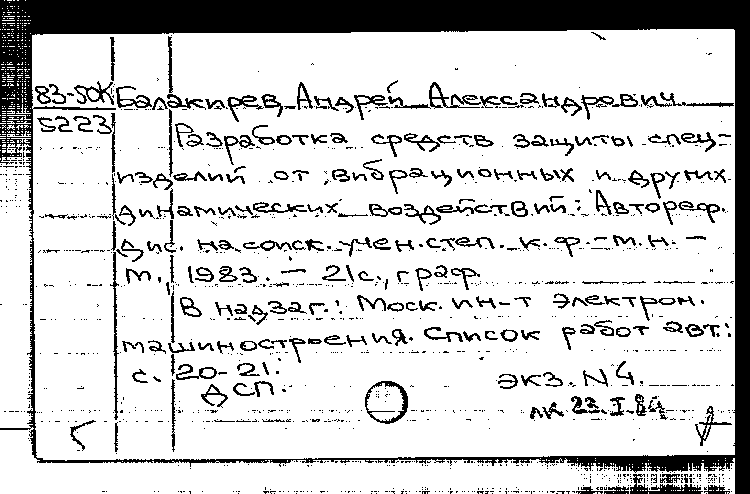 83-50К Балакирев, Андрей Александрович.
5223 Разработка средств защиты спец-
изделий от вибрационных и других
динамических воздействий: Автореф.
дис. на соиск. учен. степ. к.ф.-м.н. –
М., 1983. – 21с., граф.
В надзаг.: Моск. ин-т электрон.
машиностроения. Список работ авт.:
с. 20-21.
ДСП.
экз. N4.
23.I.84
5